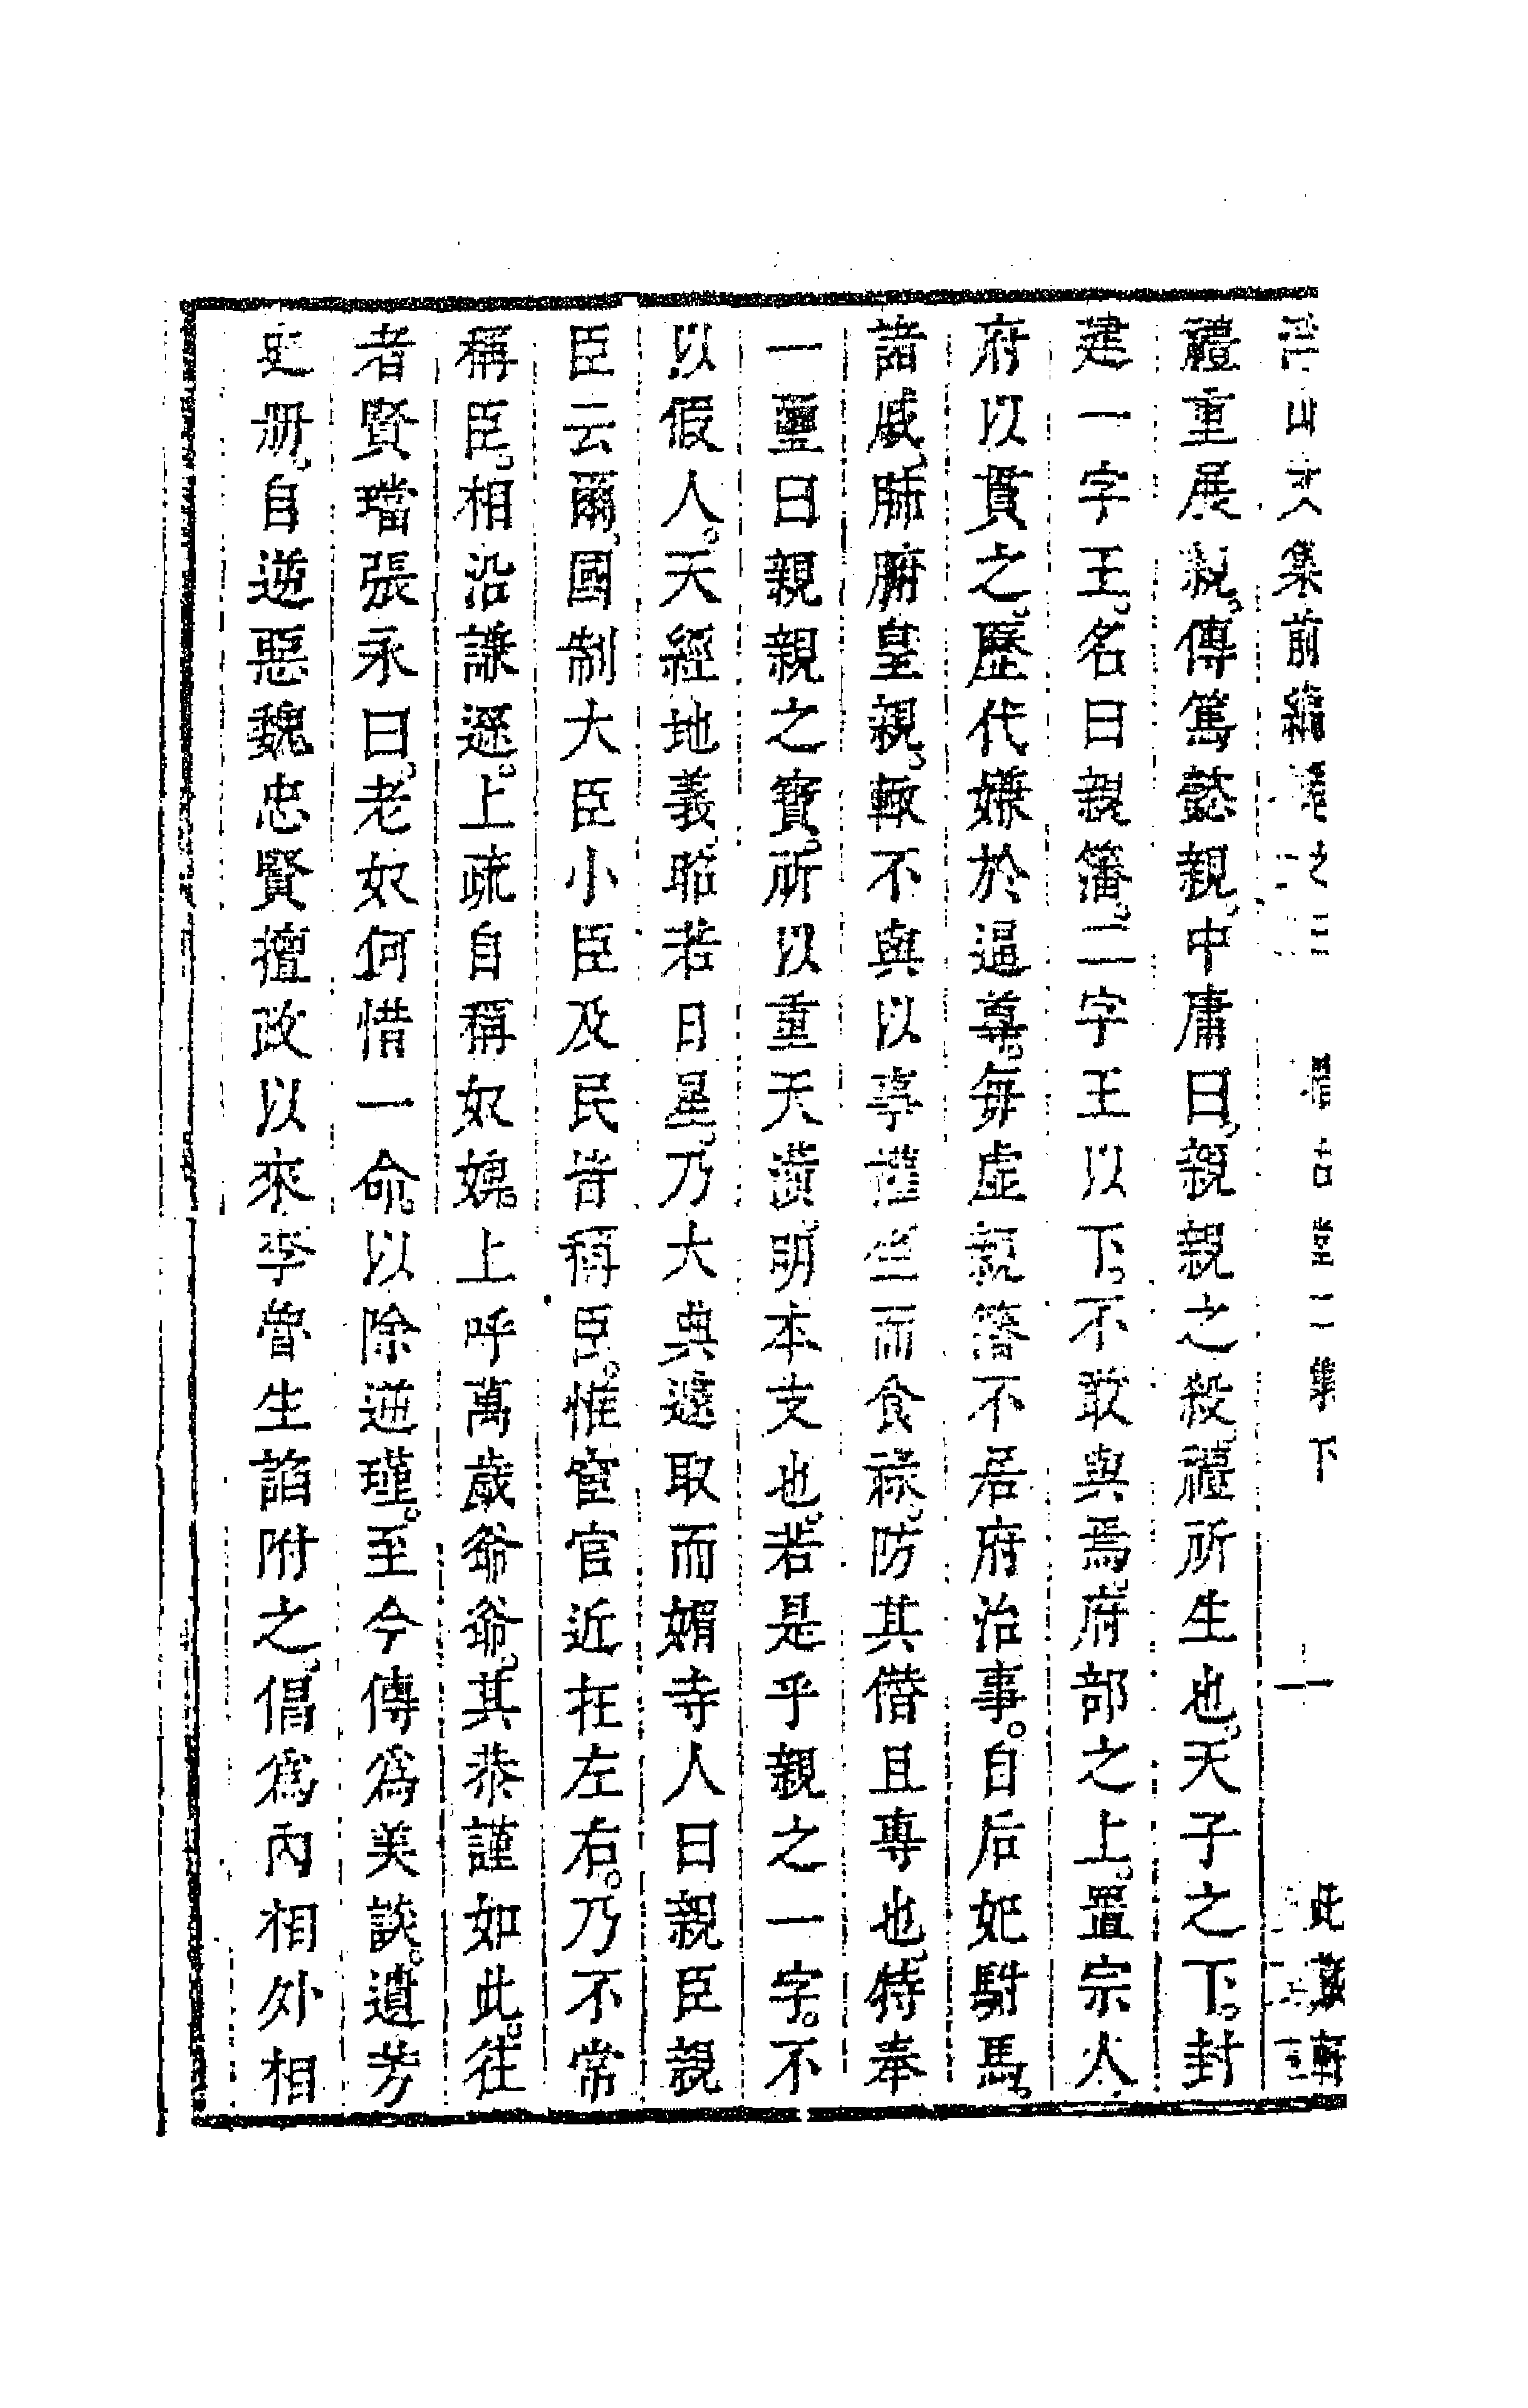 浮山文集前編卷之三 稽古堂二集下 十一 此藏軒
禮重展親。傳篤懿親。中庸曰。親親之殺。禮所生也。天子之下。封
建一字王。名曰親籓。二字王以下。不敢與焉。府部之上。置宗人
府以貫之。歷代嫌於逼尊。毎虛親籓不居府治事。自后妃駙馬。
諸戚肺腑皇親。輙不與以事權。坐而食祿。防其僭且專也。特奉
一璽曰親親之寶。所以重天潢。明本支也。若是乎親之一字。不
以假人。天經地義。昭若日星。乃大典遽取而媚寺人曰親臣親
臣云爾。國制大臣小臣及民皆稱臣。惟宦官近在左右。乃不常
稱臣。相沿謙遜。上疏自稱奴媿。上呼萬歲爺爺。其恭謹如此。往
者賢璫張永曰。老奴何惜一命。以除逆瑾。至今傳爲美談。遺芳
史册。自逆惡魏忠賢擅政以來。李魯生諂附之。倡爲內相外相